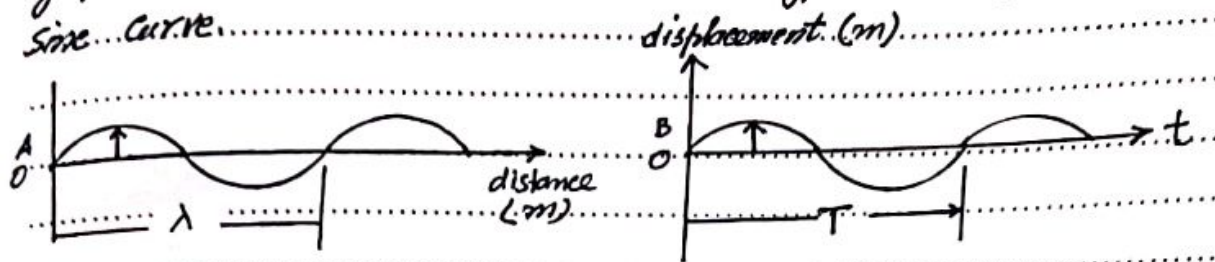 Sine Curve
displacement (m)
A
O
distance
(m)
λ
B
O
t
T